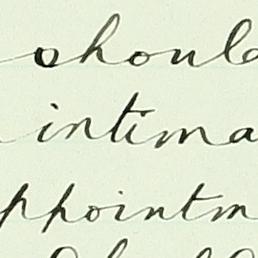 should
intima
ppointm